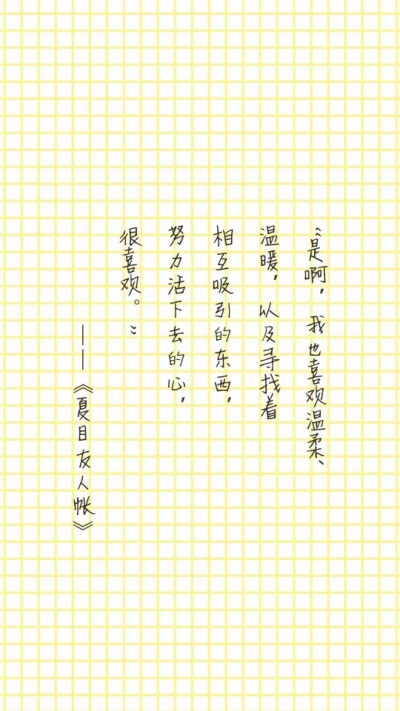 “是啊，我也喜欢温柔、
温暖，以及寻找着
相互吸引的东西，
努力活下去的心，
很喜欢。”
——《夏目友人帐》